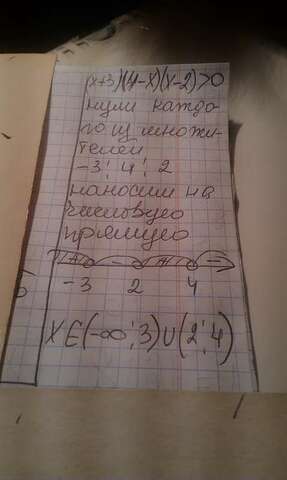 (x+3)(4-x)(x-2)>0
нули каждо-
го из множи-
телей
-3; 4; 2
наносим на
числовую
прямую
+ - + -
-3 2 4
X ∈ (-∞; 3) ∪ (2; 4)